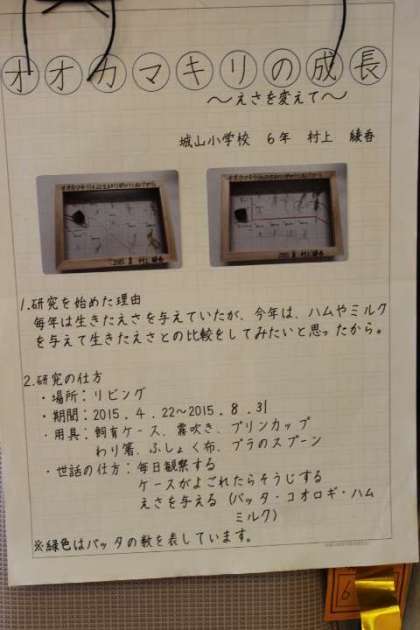 オオカマキリの成長
～えさを変えて～
城山小学校 6年 村上 綾香
1.研究を始めた理由
毎年は生きたえさを与えていたが、今年は、ハムやミルク
を与えて生きたえさとの比較をしてみたいと思ったから。
2.研究の仕方
・場所：リビング
・期間：2015.4.22～2015.8.31
・用具：飼育ケース、霧吹き、プリンカップ
わり箸、ふしょく布、プラのスプーン
・世話の仕方：毎日観察する
ケースがよごれたらそうじする
えさを与える（バッタ・コオロギ・ハム
ミルク）
※緑色はバッタの数を表しています。
6